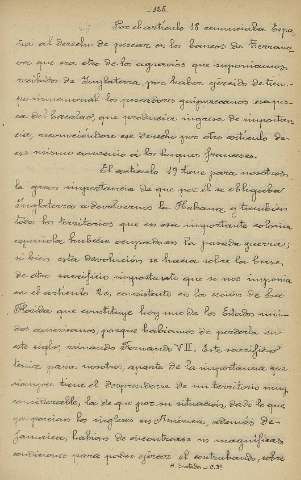 -128-
Por el artículo 18 renunciaba Espa-
ña al derecho de pescar en los bancos de Terrano-
va que era otro de los agravios que suponíamos
recibidos de Inglaterra, por haber ejercido de tiem-
po inmemorial los pescadores guipuzcoanos esa pes-
ca del bacalao, que producía ingreso de importan-
cia, reconociéndose ese derecho por otro artículo de
ese mismo convenio a los buques franceses.
El artículo 19 tiene para nosotros
la gran importancia de que por él se obligaba
Inglaterra a devolvernos la Habana y también
todo los territorios que en esa importante colonia
española hubiese ocupado en la pasada guerra;
si bien esta devolución se hacía sobre la base
de otro sacrificio importante que se nos imponía
en el artículo 20, consistente en la cesión de la
Florida que constituye hoy uno de los Estados uni-
dos americanos, porque habíamos de perderla en
este siglo, reinando Fernando VII. Este sacrificio
tenía para nosotros, aparte de la importancia que
siempre tiene el desprenderse de un territorio muy
considerable, la de que por su situación, dado lo que
ya poseían los ingleses en América, además de
Jamaica, habían de encontrarse en magníficas
condiciones para poder ejercer el contrabando, sobre